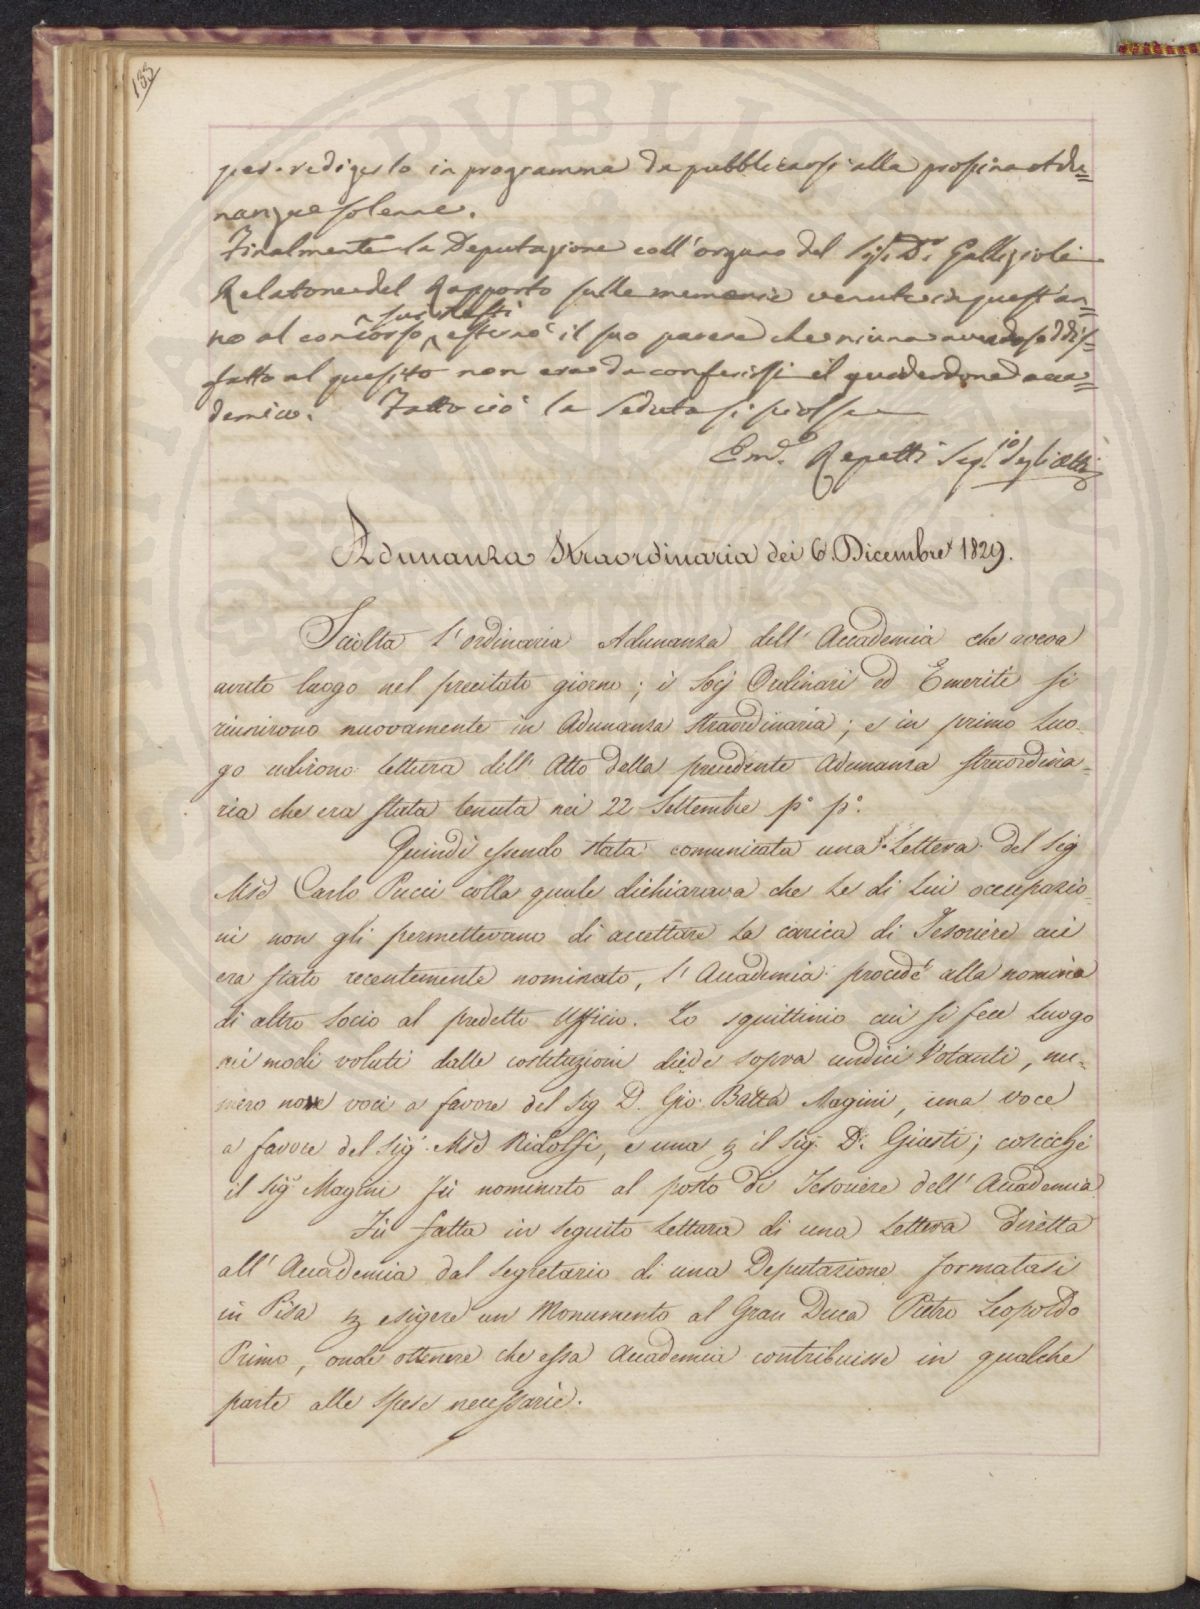 188
per redigerlo in programma da pubblicarsi alla prossima Adu=
nanza solenne.
Finalmente la Deputazione coll'organo del Sig. D. Gallizioli
Relatore del Rapporto sulle memorie venute in quest'an-
no al concorso sui testi esternò il suo parere che niuna avendo soddis-
fatto al quesito non era da conferirsi il guiderdone acca=
demico. Fatto ciò la seduta si sciolse
Em. Repetti Seg.io degli Atti
Adunanza Straordinaria dei 6. Dicembre 1829.
Sciolta l'ordinaria Adunanza dell'Accademia che aveva
avuto luogo nel precitato giorno; i Socj Ordinari ed Emeriti si
riunirono nuovamente in Adunanza Straordinaria; e in primo Luo-
go udirono lettura dell'Atto della precedente Adunanza straordina-
ria che era stata tenuta nei 22 Settembre p.o p.o
Quindi essendo stata comunicata una Lettera del Sig
M.se Carlo Pucci colla quale dichiarava che Le di Lui occupazio-
ni non gli permettevano di accettare La carica di Tesoriere cui
era stato recentemente nominato, l'Accademia procedè alla nomina
di altro Socio al predetto Officio. Lo squittinio cui si fece Luogo
nei modi voluti dalle costituzioni diede sopra undici Votanti, nu-
mero nove voci a favore del Sig D. Gio: Batta Magini, una voce
a favore del Sig.r M.se Ridolfi, e una p il Sig. D. Giusti; cosicchè
il Sig.r Magini fù nominato al posto di Tesoriere dell'Accademia
Fù fatta in seguito Lettura di una Lettera diretta
all'Accademia dal Segretario di una Deputazione formatasi
in Pisa p erigere un Monumento al Gran Duca Pietro Leopoldo
Primo, onde ottenere che essa Accademia contribuisse in qualche
parte alle spese necessarie.